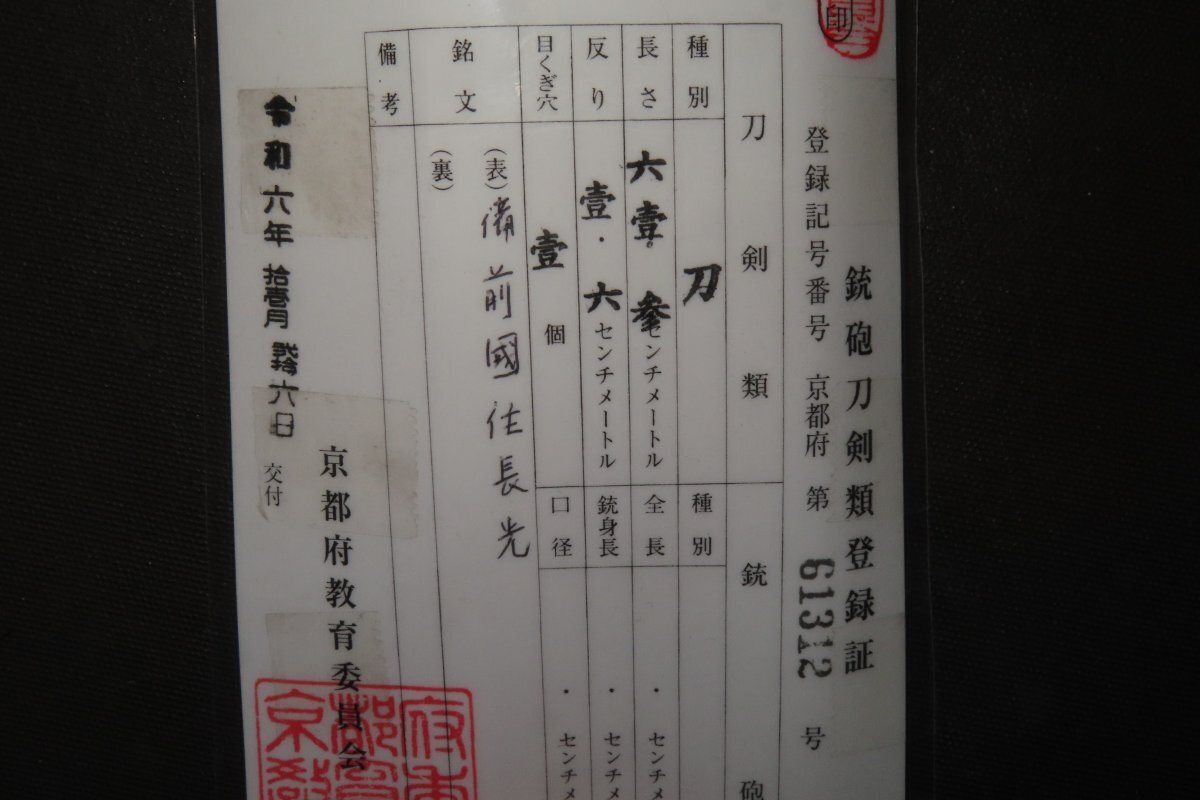 銃砲刀剣類登録証
登録記号番号 京都府 第 61312 号
印
刀剣類
銃砲
種別
刀
種別
長さ
六壹.参センチメートル
全長
・センチメ
反り
壹.六センチメートル
銃身長
・センチメ
目くぎ穴
壹個
口径
・センチメ
銘文
(表)備前國住長光
(裏)
備考
京都府教育委員会
令和六年拾壹月弐拾六日交付